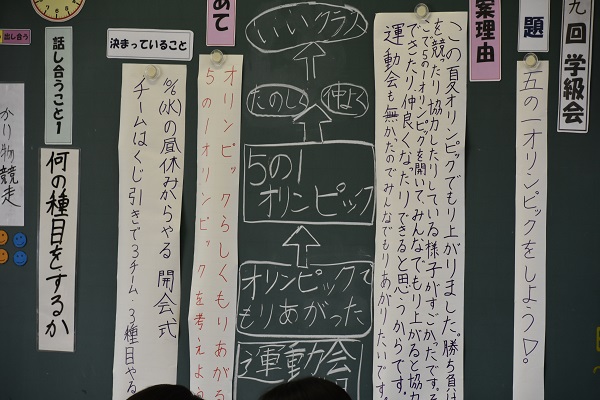 九回 学級会
題
五の一オリンピックをしよう!
案理由
この夏オリンピックでもり上がりました。勝ち負け
を競ったり協力したりしている様子がすごかったです。そ
こで5の1オリンピックを開いて、みんなでもり上がると協力
できたり、仲良くなったりできると思うからです。
運動会も無かったのでみんなでもり上がりたいです。
いいクラス
仲よく
たのしく
5の1
オリンピック
オリンピックで
もりあがった
運動会
あて
オリンピックらしくもりあがる
5の1オリンピックを考えよう
決まっていること
(水)の昼休みからやる 開会式
チームはくじ引きで3チーム・3種目やる
話し合うこと1
何の種目をするか
出し合う
かり物競走